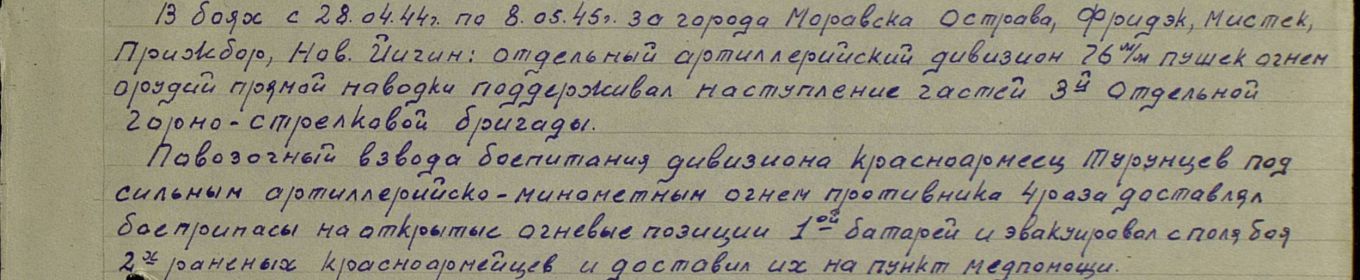 В боях с 28.04.44г. по 8.05.45г. за города Моравска Острава, Фридэк, Мистек,
Прижбор, Нов. Йичин: отдельный артиллерийский дивизион 76 м/м пушек огнем
орудий прямой наводки поддерживал наступление частей 3й Отдельной
горно-стрелковой бригады.
Повозочный взвода боепитания дивизиона красноармеец Турунцев под
сильным артиллерийско-минометным огнем противника 4 раза доставлял
боеприпасы на открытые огневые позиции 1ой батарей и эвакуировал с поля боя
2х раненых красноармейцев и доставил их на пункт медпомощи.